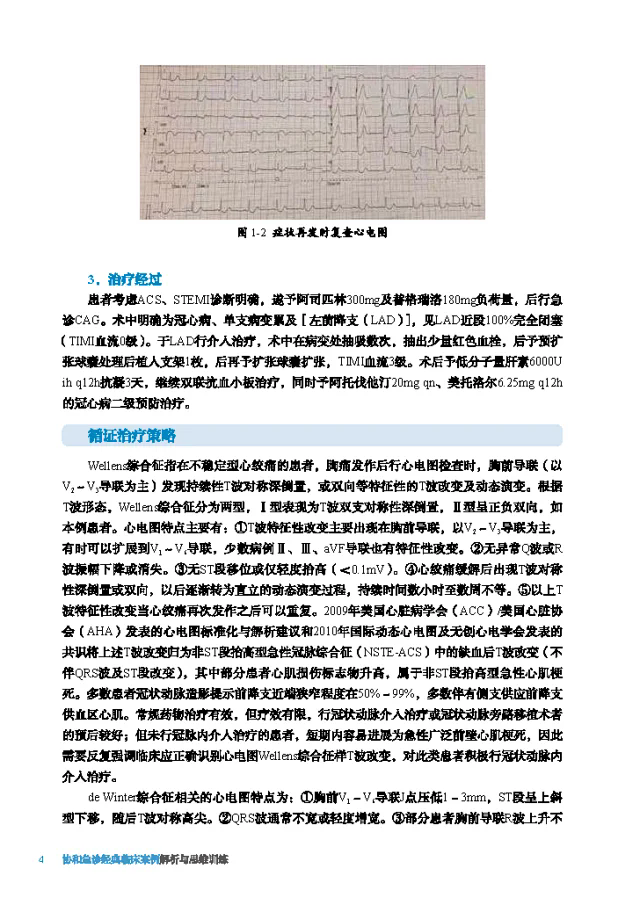 图 1-2 症状再发时复查心电图
3．治疗经过
患者考虑ACS、STEMI诊断明确，遂予阿司匹林300mg及替格瑞洛180mg负荷量，后行急
诊CAG。术中明确为冠心病、单支病变累及［左前降支（LAD）］，见LAD近段100%完全闭塞
（TIMI血流0级）。于LAD行介入治疗，术中在病变处抽吸数次，抽出少量红色血栓，后予预扩
张球囊处理后植入支架1枚，后再予扩张球囊扩张，TIMI血流3级。术后予低分子量肝素6000U
ih q12h抗凝3天，继续双联抗血小板治疗，同时予阿托伐他汀20mg qn、美托洛尔6.25mg q12h
的冠心病二级预防治疗。
循证治疗策略
Wellens综合征指在不稳定型心绞痛的患者，胸痛发作后行心电图检查时，胸前导联（以
V₂～V₃导联为主）发现持续性T波对称深倒置，或双向等特征性的T波改变及动态演变。根据
T波形态，Wellens综合征分为两型，Ⅰ型表现为T波双支对称性深倒置，Ⅱ型呈正负双向，如
本例患者。心电图特点主要有：①T波特征性改变主要出现在胸前导联，以V₂～V₃导联为主，
有时可以扩展到V₁～V₆导联，少数病例Ⅱ、Ⅲ、aVF导联也有特征性改变。②无异常Q波或R
波振幅下降或消失。③无ST段移位或仅轻度抬高（＜0.1mV）。④心绞痛缓解后出现T波对称
性深倒置或双向，以后逐渐转为直立的动态演变过程，持续时间数小时至数周不等。⑤以上T
波特征性改变当心绞痛再次发作之后可以重复。2009年美国心脏病学会（ACC）/美国心脏协
会（AHA）发表的心电图标准化与解析建议和2010年国际动态心电图及无创心电学会发表的
共识将上述T波改变归为非ST段抬高型急性冠脉综合征（NSTE-ACS）中的缺血后T波改变（不
伴QRS波及ST段改变），其中部分患者心肌损伤标志物升高，属于非ST段抬高型急性心肌梗
死。多数患者冠状动脉造影提示前降支近端狭窄程度在50%～99%，多数伴有侧支供应前降支
供血区心肌。常规药物治疗有效，但疗效有限，行冠状动脉介入治疗或冠状动脉旁路移植术者
的预后较好；但未行冠脉内介入治疗的患者，短期内容易进展为急性广泛前壁心肌梗死，因此
需要反复强调临床应正确识别心电图Wellens综合征样T波改变，对此类患者积极行冠状动脉内
介入治疗。
de Winter综合征相关的心电图特点为：①胸前V₁～V₆导联J点压低1～3mm，ST段呈上斜
型下移，随后T波对称高尖。②QRS波通常不宽或轻度增宽。③部分患者胸前导联R波上升不
4 协和急诊经典临床案例解析与思维训练